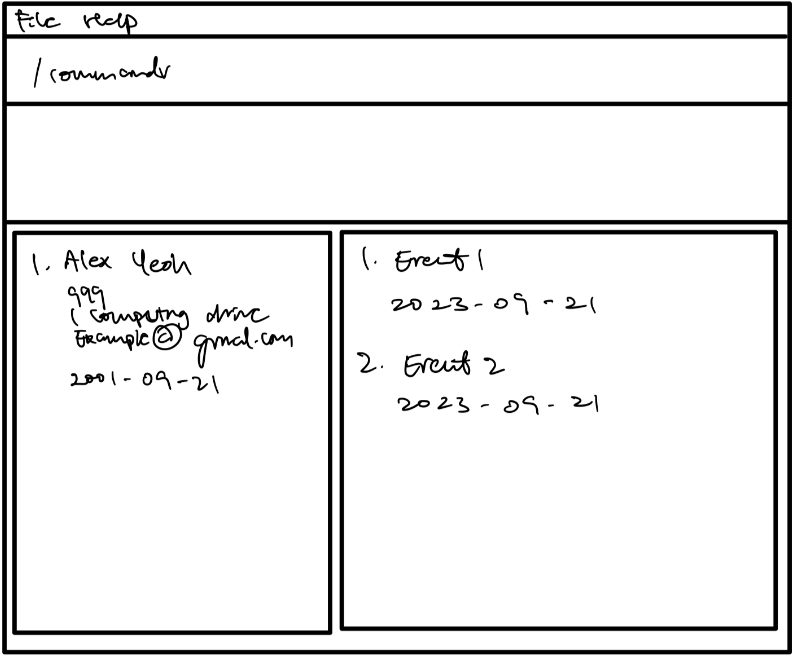 File Help
/commands
1. Alex Yeoh
999
1 Computing drive
Example@gmail.com
2001-09-21
1. Event 1
2023-09-21
2. Event 2
2023-09-21